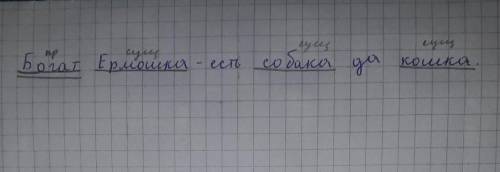 пр сущ сущ сущ
Богат Ермошка - есть собака да кошка.